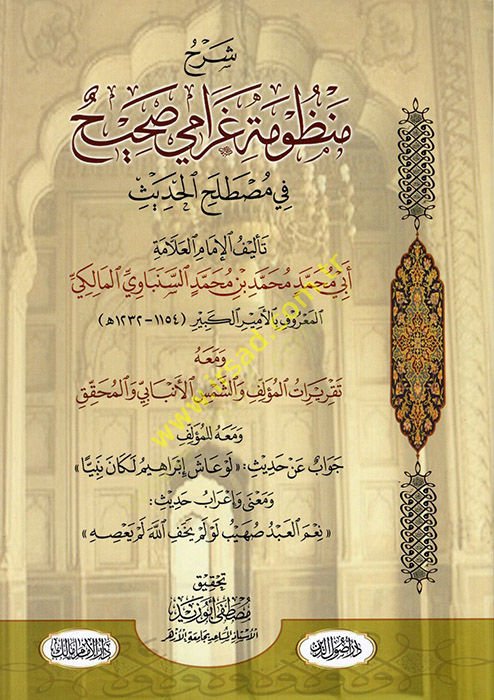 شَرْحُ
مَنْظُومَةِ غَرَامِي صَحِيحٌ
فِي مُصْطَلَحِ الحَدِيثِ
تَأْلِيفُ الإِمَامِ العَلَّامَةِ
أَبِي مُحَمَّد مُحَمَّدِ بْنِ مُحَمَّدٍ السَّنْبَاوِيِّ المَالِكِيِّ
المَعْرُوفِ بِالأَمِيرِ الكَبِيرِ (١١٥٤-١٢٣٢هـ)
وَمَعَهُ
تَقْرِيرَاتُ المُؤَلِّفِ وَالشَّمْسِ الأَنْبَابِيِّ وَالمُحَقِّقِ
وَمَعَهُ لِلمُؤَلِّفِ
جَوَابٌ عَنْ حَدِيثِ: «لَوْ عَاشَ إِبْرَاهِيمُ لَكَانَ نَبِيًّا»
وَمَعْنَى وَإِعْرَابُ حَدِيثِ:
«نِعْمَ العَبْدُ صُهَيْبٌ لَوْ لَمْ يَخَفِ اللَّهَ لَمْ يَعْصِهِ»
تحقيق
مُصْطَفَى أَبُو زَيْد
الأستاذ المساعد بجامعة الأزهر
دار أصول الدين
دار الإمام مالك